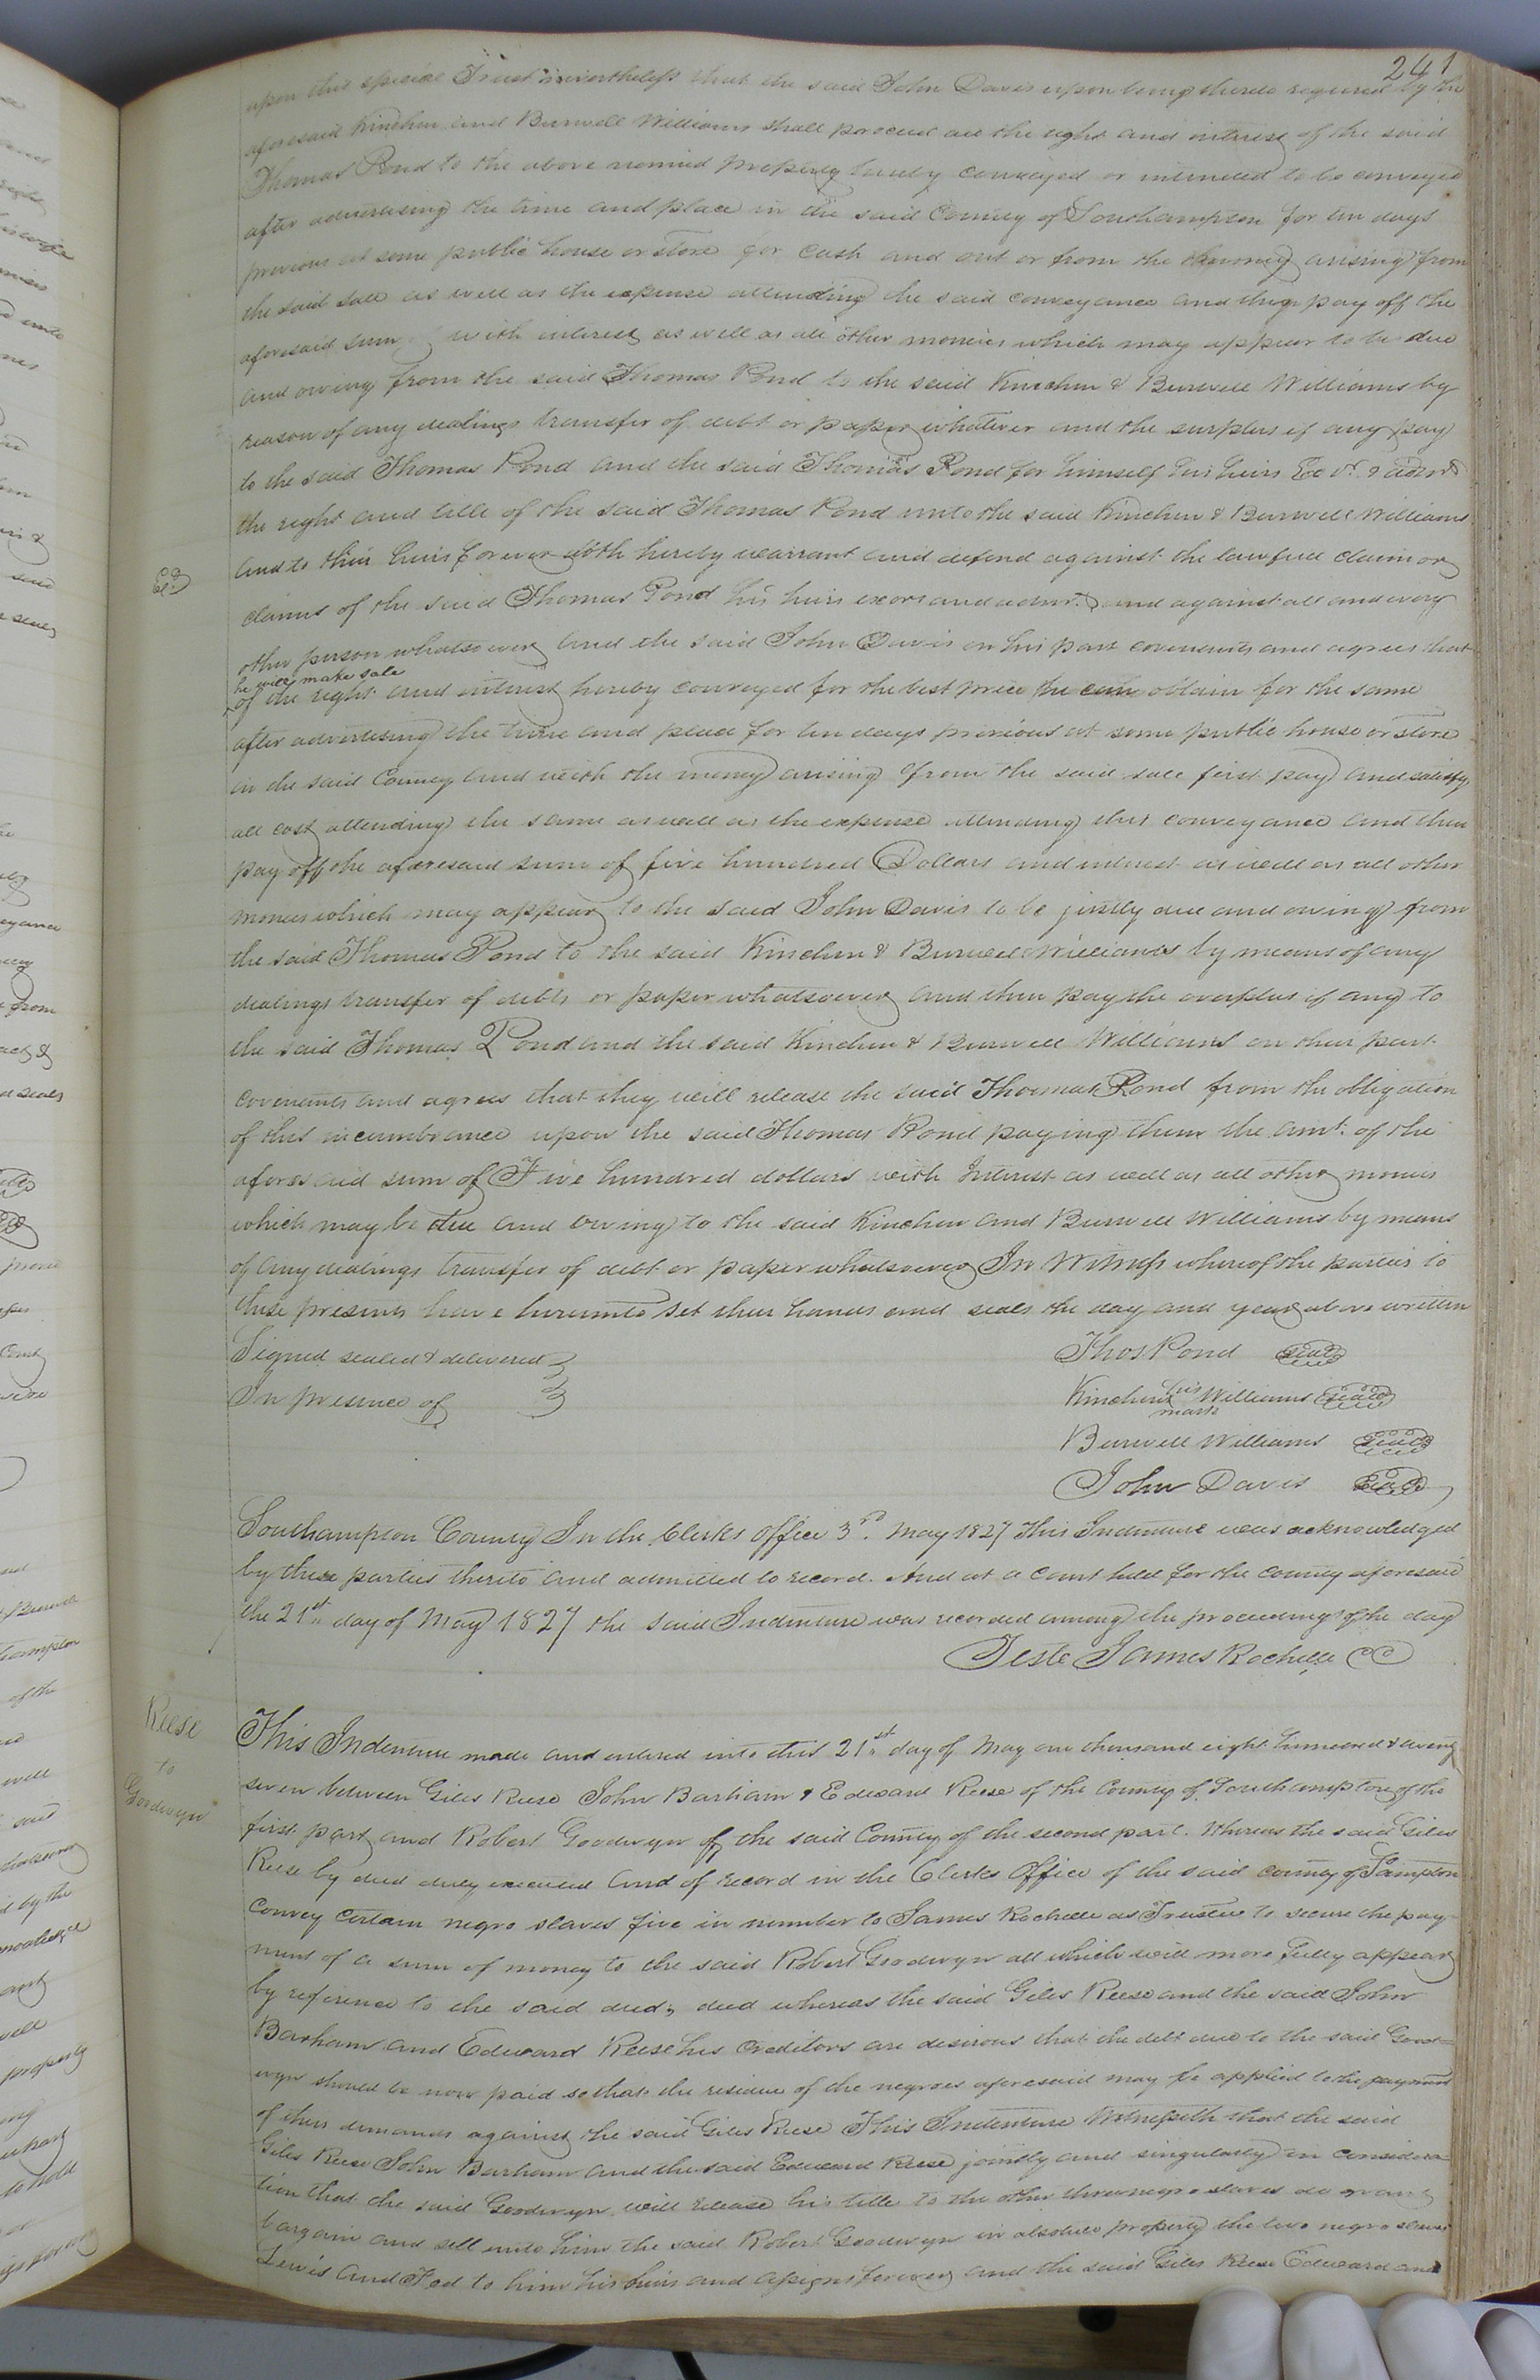 241
upon this special Trust nevertheless that the said John Davis upon being thereto required by the
aforesaid Kinchen and Burwell Williams shall proceed all the right and interest of the said
Thomas Pond to the above named property hereby conveyed or intended to be conveyed
after advertising the time and place in the said County of Southampton for ten days
previous at some public house or store for cash and out or from the money arising from
the said sale as well as the expense attending the said conveyance and then pay off the
aforesaid sum with interest as well as all other monies which may appear to be due
and owing from the said Thomas Pond to the said Kinchen & Burwell Williams by
reason of any dealings transfer of debt or paper whatever and the surplus if any pay
to the said Thomas Pond and the said Thomas Pond for himself his heirs Exors. & admrs
the right and title of the said Thomas Pond unto the said Kinchen & Burwell Williams
and to their heirs forever doth hereby warrant and defend against the lawful claim or
Ex
claims of the said Thomas Pond his heirs exors and admr. and against all and every
other person whatsoever and the said John Davis on his part covenants and agrees that
he will make sale
of the right and interest hereby conveyed for the best price he can obtain for the same
after advertising the time and place for ten days previous at some public house or store
in the said County and with the money arising from the said sale first pay and satisfy
all cost attending the same as well as the expense attending this conveyance and then
pay off the aforesaid sum of five hundred Dollars and interest as well as all other
monies which may appear to the said John Davis to be justly due and owing from
the said Thomas Pond to the said Kinchen & Burwell Williams by means of any
dealings transfer of debts or paper whatsoever and then pay the overplus if any to
the said Thomas Pond and the said Kinchen & Burwell Williams on their part
covenants and agrees that they will release the said Thomas Pond from the obligation
of this incumbrance upon the said Thomas Pond paying them the amt. of the
aforesaid sum of Five hundred dollars with Interest as well as all other monies
which may be due and owing to the said Kinchen and Burwell Williams by means
of any dealings transfer of debt or paper whatsoever In Witness whereof the parties to
these presents have hereunto set their hands and seals the day and year above written
Signed sealed & delivered Thos Pond Seal
In presence of Kinchen his mark Williams Seal
Burwell Williams Seal
John Davis Seal
Southampton County In the Clerks Office 3rd. May 1827 This Indenture was acknowledged
by these parties thereto and admitted to record. And at a court held for the county aforesaid
the 21st day of May 1827 the said Indenture was recorded among the proceedings of the day
Teste James Rochelle CC
Reese
to
Goodwyn
This Indenture made and entered into this 21st day of May one thousand eight hundred & twenty
seven between Giles Reese John Barham & Edward Reese of the County of Southampton of the
first part and Robert Goodwyn of the said County of the second part. Whereas the said Giles
Reese by deed duly executed and of record in the Clerks Office of the said county of Sampton
Convey certain negro slaves five in number to James Rochelle as Trustee to secure the pay-
ment of a sum of money to the said Robert Goodwyn all which will more fully appear
by reference to the said deed, deed whereas the said Giles Reese and the said John
Barham and Edward Reese his Creditors are desirous that the debt due to the said Good=
wyn should be now paid so that the residue of the negroes aforesaid may be applied to the payment
of their demands against the said Giles Reese This Indenture Witnesseth that the said
Giles Reese John Barham and the said Edward Reese jointly and singularly in considera=
tion that the said Goodwyn will release his title to the other three negro slaves do grant
bargain and sell unto him the said Robert Goodwyn in absolute property the two negro slaves
Lewis and to him his heirs and assigns forever and the said Giles Reese Edward and